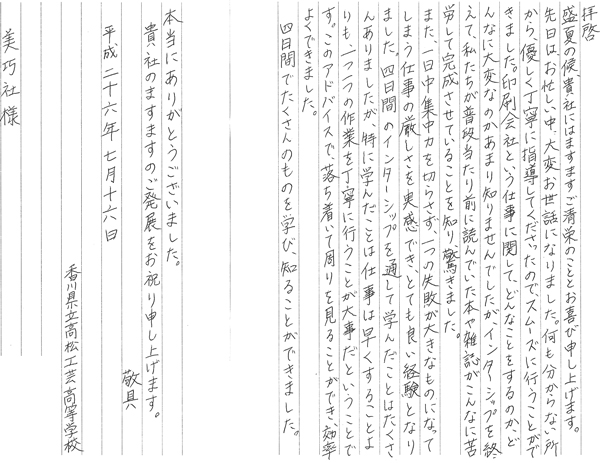 拝啓
盛夏の候、貴社にはますますご清栄のこととお喜び申し上げます。
先日はお忙しい中、大変お世話になりました。何も分からない所
から、優しく丁寧に指導してくださったのでスムーズに行うことがで
きました。印刷会社という仕事に関して、どんなことをするのか、ど
んなに大変なのかあまり知りませんでしたが、インターンシップを終
えて、私たちが普段当たり前に読んでいた本や雑誌がこんなに苦
労して完成させていることを知り、驚きました。
また、一日中集中力を切らさず、一つの失敗が大きなものになって
しまう仕事の厳しさを実感でき、とても良い経験となり
ました。四日間のインターンシップを通して学んだことはたくさ
んありましたが、特に学んだことは仕事は早くすることよ
りも、一つ一つの作業を丁寧に行うことが大事だということで
す。このアドバイスで、落ち着いて周りを見ることができ、効率
よくできました。
四日間でたくさんのものを学び、知ることができました。
本当にありがとうございました。
貴社のますますのご発展をお祝り申し上げます。
敬具
平成二十六年七月十六日
香川県立高松工芸高等学校
美巧社様